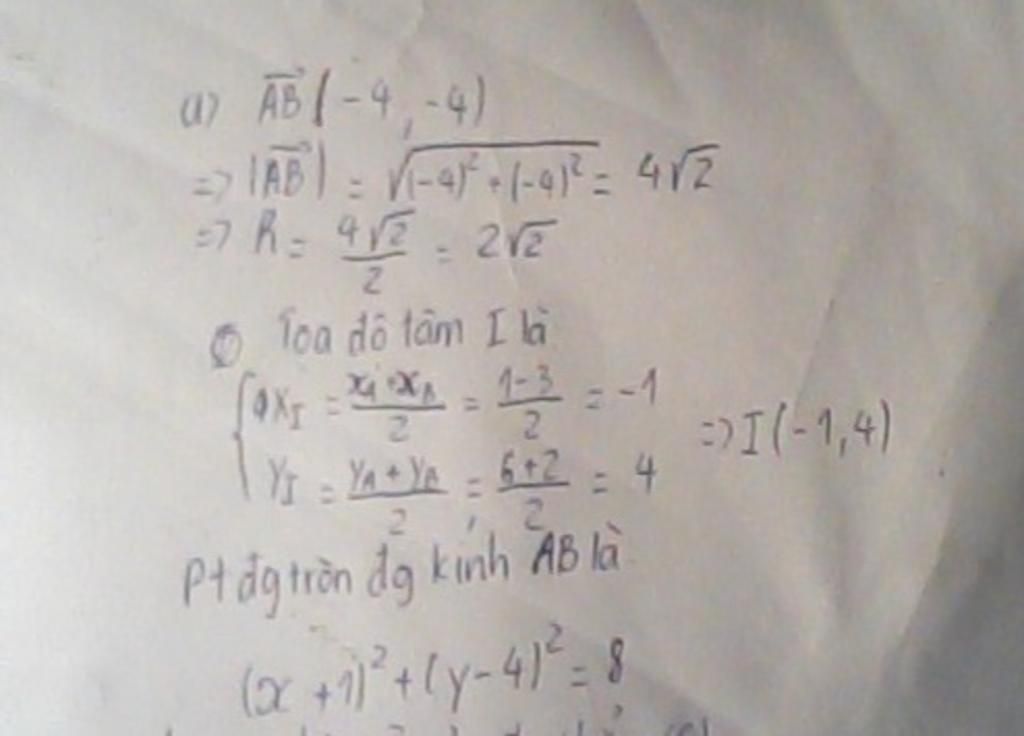 a) AB(-4, -4)
=> |AB| = √(-4)² + (-4)² = 4√2
=> R = 4√2/2 = 2√2
Tọa độ tâm I là
xI = xA + xB/2 = 1-3/2 = -1
=> I(-1,4)
yI = yA + yB/2 = 6+2/2 = 4
Pt đg tròn đg kính AB là
(x +1)² + (y - 4)² = 8